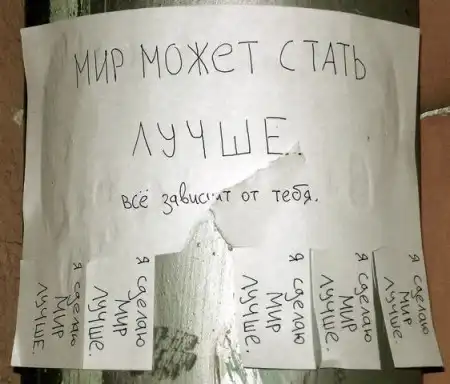 МИР МОЖЕТ СТАТЬ
ЛУЧШЕ..
всё зависит от тебя.
я сделаю
МИР
лучше.
я сделаю
МИР
лучше.
я сделаю
МИР
лучше.
я сделаю
МИР
лучше.
я сделаю
МИР
лучше.